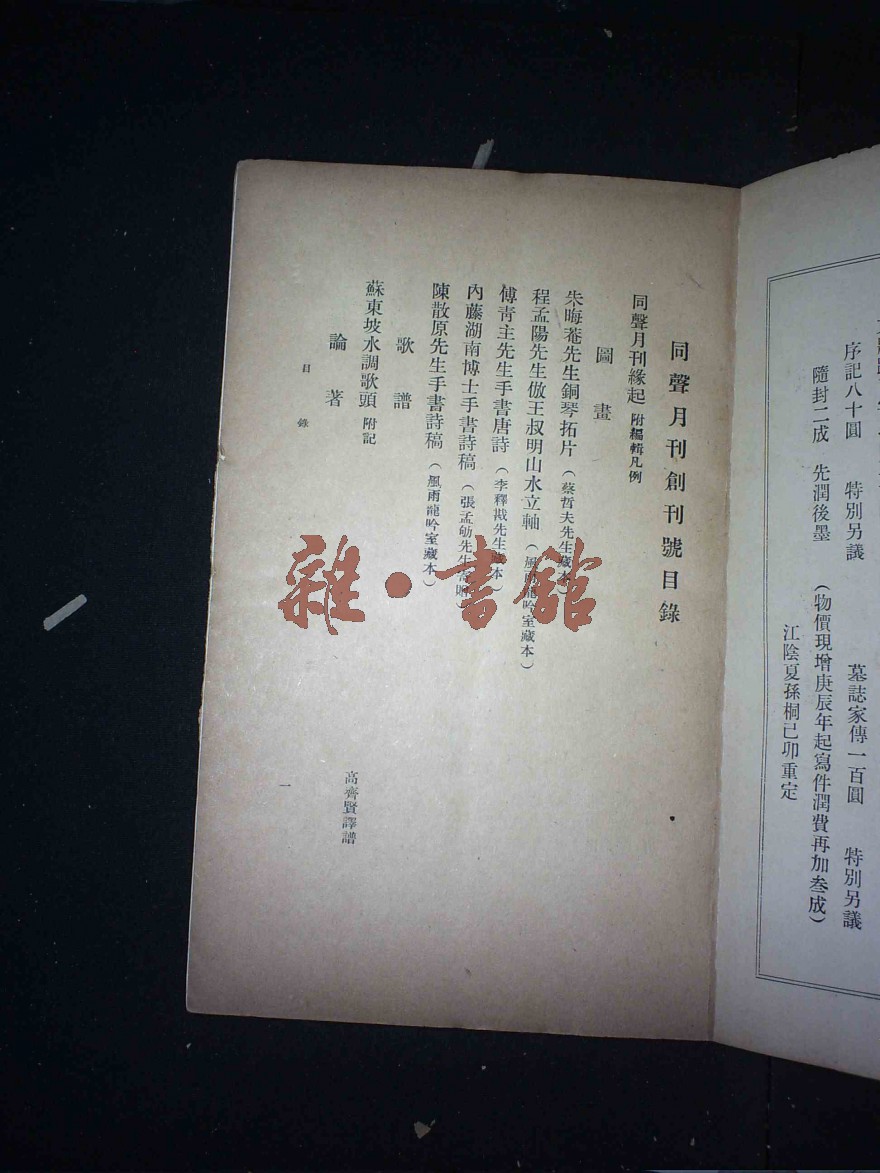 序記八十圓　特別另議　墓誌家傳一百圓　特別另議
隨封二成　先潤後墨　（物價現增庚辰年起寫件潤費再加叁成）
江陰夏孫桐己卯重定
同聲月刊創刊號目錄
同聲月刊緣起　附編輯凡例
圖畫
朱晦菴先生銅琴拓片（蔡哲夫先生藏本）
程孟陽先生倣王叔明山水立軸（風雨龍吟室藏本）
傅青主先生手書唐詩（李釋戡先生藏本）
內藤湖南博士手書詩稿（張孟劬先生）
陳散原先生手書詩稿（風雨龍吟室藏本）
歌譜
蘇東坡水調歌頭　附記　高齊賢譯譜
論著
目錄　一
雜·書館